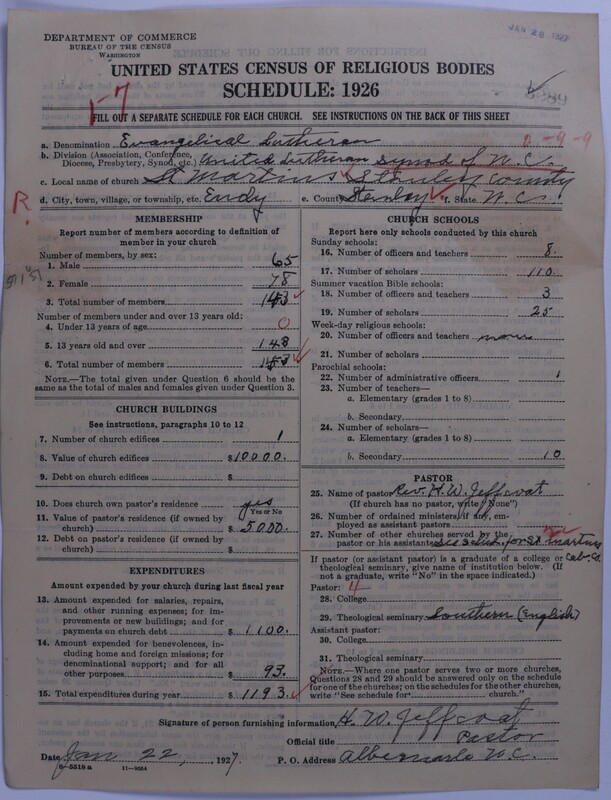 DEPARTMENT OF COMMERCE
BUREAU OF THE CENSUS
WASHINGTON
JAN 28 1927
UNITED STATES CENSUS OF RELIGIOUS BODIES
SCHEDULE: 1926
1-7
FILL OUT A SEPARATE SCHEDULE FOR EACH CHURCH. SEE INSTRUCTIONS ON THE BACK OF THIS SHEET
a. Denomination Evangelical Lutheran
0-9-9
b. Division (Association, Conference, Diocese, Presbytery, Synod, etc.) United Lutheran Synod of N.C.
c. Local name of church St Martins Stanley County
R.
d. City, town, village, or township, etc. Endy e. County Stanley f. State N.C.
MEMBERSHIP
Report number of members according to definition of
member in your church
Number of members, by sex:
1. Male 65
2. Female 78
3. Total number of members 143
Number of members under and over 13 years old:
4. Under 13 years of age 0
5. 13 years old and over 148
6. Total number of members
NOTE.—The total given under Question 6 should be the
same as the total of males and females given under Question 3.
CHURCH BUILDINGS
See instructions, paragraphs 10 to 12
7. Number of church edifices 1
8. Value of church edifices $10000.
9. Debt on church edifices $
10. Does church own pastor's residence yes
Yes or No
11. Value of pastor's residence (if owned by
church) $5000.
12. Debt on pastor's residence (if owned by
church) $
EXPENDITURES
Amount expended by your church during last fiscal year
13. Amount expended for salaries, repairs,
and other running expenses; for im-
provements or new buildings; and for
payments on church debt $1100.
14. Amount expended for benevolences, in-
cluding home and foreign missions; for
denominational support; and for all
other purposes $93.
15. Total expenditures during year $1193.
CHURCH SCHOOLS
Report here only schools conducted by this church
Sunday schools:
16. Number of officers and teachers 8.
17. Number of scholars 110
Summer vacation Bible schools:
18. Number of officers and teachers 3
19. Number of scholars 25
Week-day religious schools:
20. Number of officers and teachers none
21. Number of scholars
Parochial schools:
22. Number of administrative officers 1
23. Number of teachers—
a. Elementary (grades 1 to 8)
b. Secondary
24. Number of scholars—
a. Elementary (grades 1 to 8)
b. Secondary 10
PASTOR
25. Name of pastor Rev. H. W. Jeffcoat
(If church has no pastor, write "None")
26. Number of ordained ministers, if any, em-
ployed as assistant pastors
27. Number of other churches served by the
pastor or his assistants See Sched. for St. Martins
Cab. Co.
If pastor (or assistant pastor) is a graduate of a college or
theological seminary, give name of institution below. (If
not a graduate, write "No" in the space indicated.)
Pastor: 4
28. College
29. Theological seminary Southern (English)
Assistant pastor:
30. College
31. Theological seminary
NOTE.—Where one pastor serves two or more churches,
Questions 28 and 29 should be answered only on the schedule
for one of the churches; on the schedules for the other churches,
write "See schedule for church."
Signature of person furnishing information H. W. Jeffcoat
Official title Pastor
Date Jan 22, 1927.
P. O. Address Albemarle N.C.
8-5518 a 11-9054